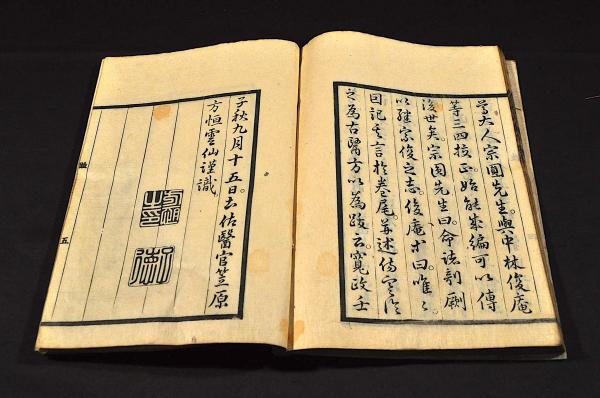 尊大人宗圓先生。與中林俊庵
等三四挍正。始能成編可以傳
後世矣。宗圓先生曰。命諸剞劂
以継宗俊之志。俊庵亦曰。唯〻
因記其言於卷尾。并述傷寒論
之為古醫方以為跋云。寛政壬
子秋九月十五日土佐醫官笠原
方恒雲仙謹識。
五